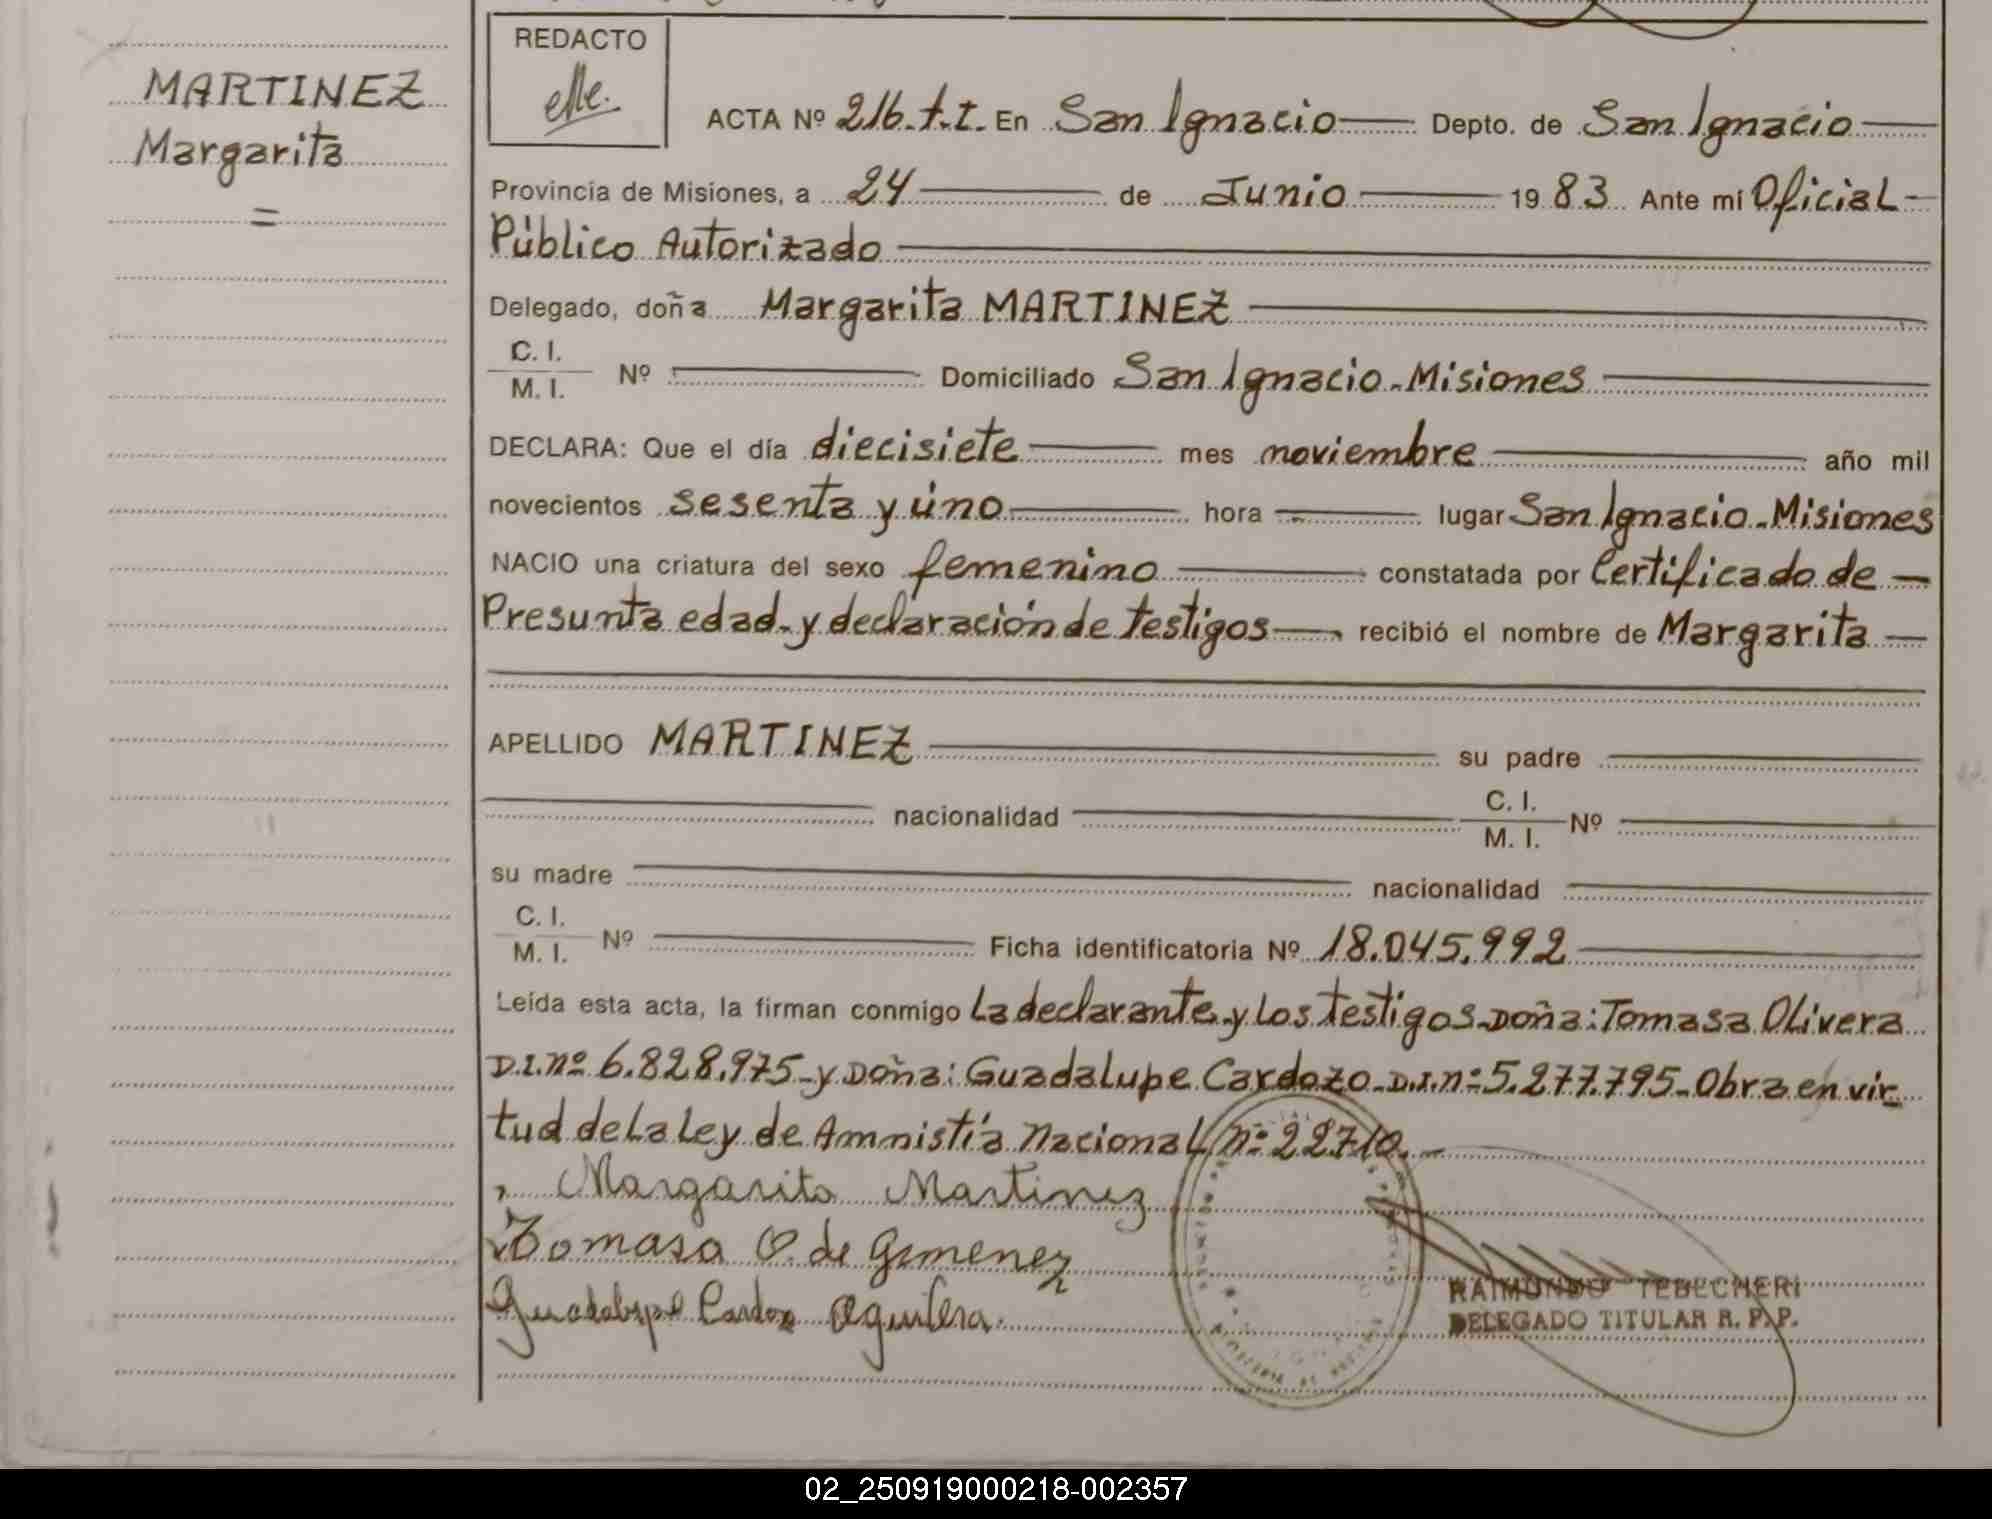 MARTINEZ
Margarita
=
REDACTO
ACTA Nº 216.t.I. En San Ignacio Depto. de San Ignacio
Provincia de Misiones, a 24 de Junio 1983. Ante mí Oficial
Público Autorizado
Delegado, doña Margarita MARTINEZ
C. I.
M. I. Nº Domiciliado San Ignacio-Misiones
DECLARA: Que el día diecisiete mes noviembre año mil
novecientos sesenta y uno hora lugar San Ignacio-Misiones
NACIO una criatura del sexo femenino constatada por Certificado de
Presunta edad-y declaración de testigos recibió el nombre de Margarita
APELLIDO MARTINEZ su padre
nacionalidad C. I.
M. I. Nº
su madre nacionalidad
C. I.
M. I. Nº Ficha identificatoria Nº 18.045.992
Leída esta acta, la firman conmigo La declarante y los testigos-Doña: Tomasa Olivera
D.I.nº 6.828.975-y Doña: Guadalupe Cardozo-D.I.nº 5.277.795-Obra en vir-
tud de la Ley de Amnistía Nacional nº 22710.-
Margarita Martinez
Tomasa O. de Gimenez
Guadalupe Cardozo Aguilera.
RAIMUNDO TEBECHERI
DELEGADO TITULAR R. P. P.
02_250919000218-002357